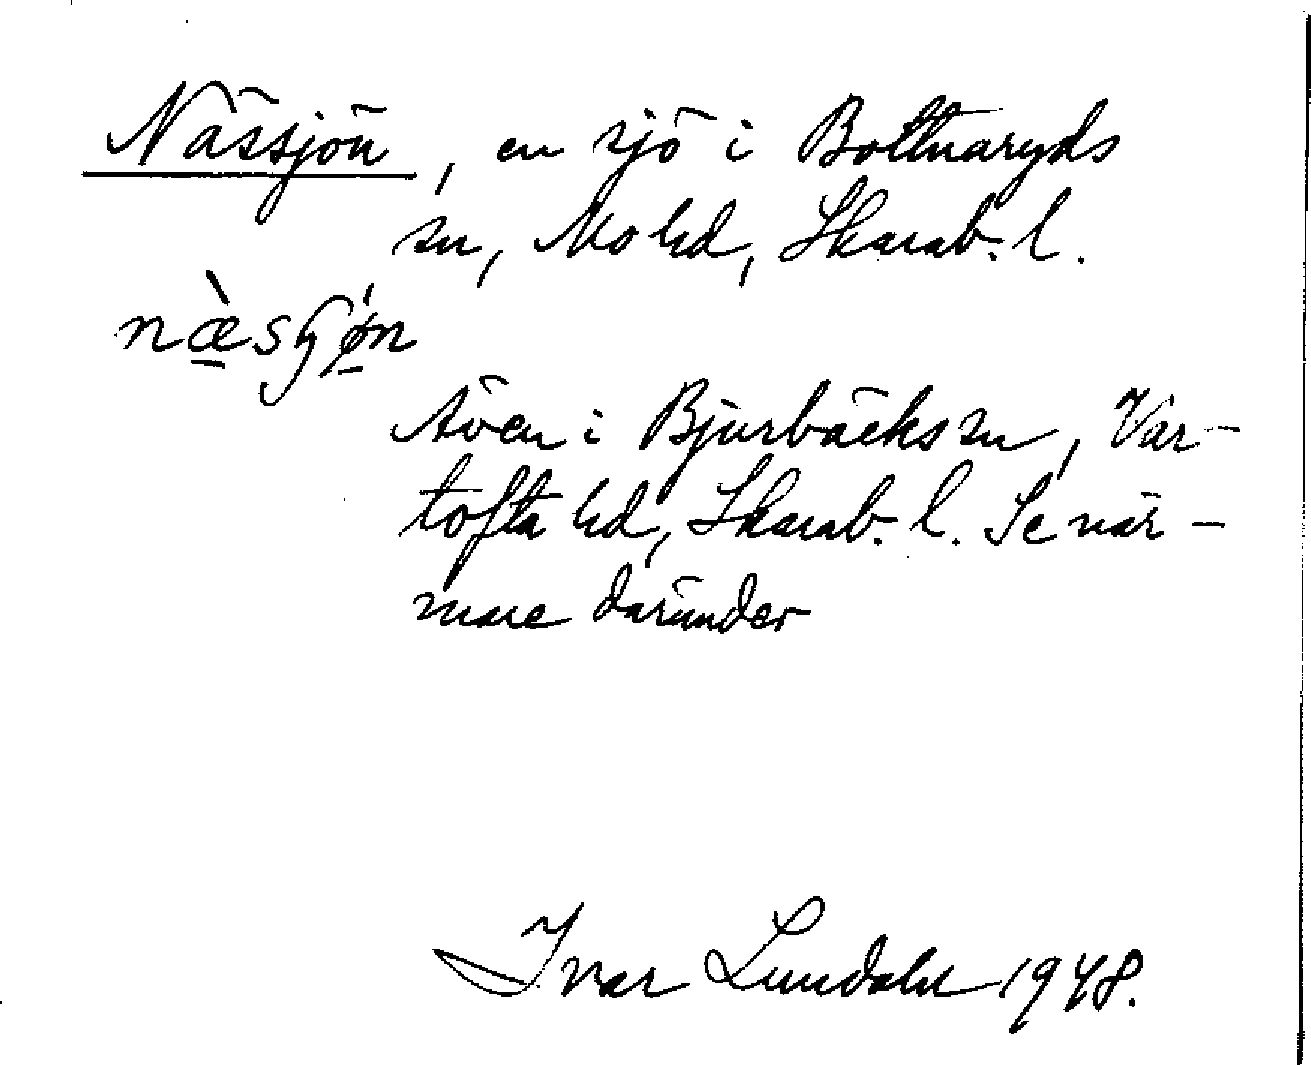 Nässjön, en sjö i Bottnaryds
sn, Mo hd, Skarab. l.
næ̀sɧø̀n
även i Bjurbäcks sn, Var-
tofta hd, Skarab. l. Se när-
mare därunder
Ivar Lundahl 1948.